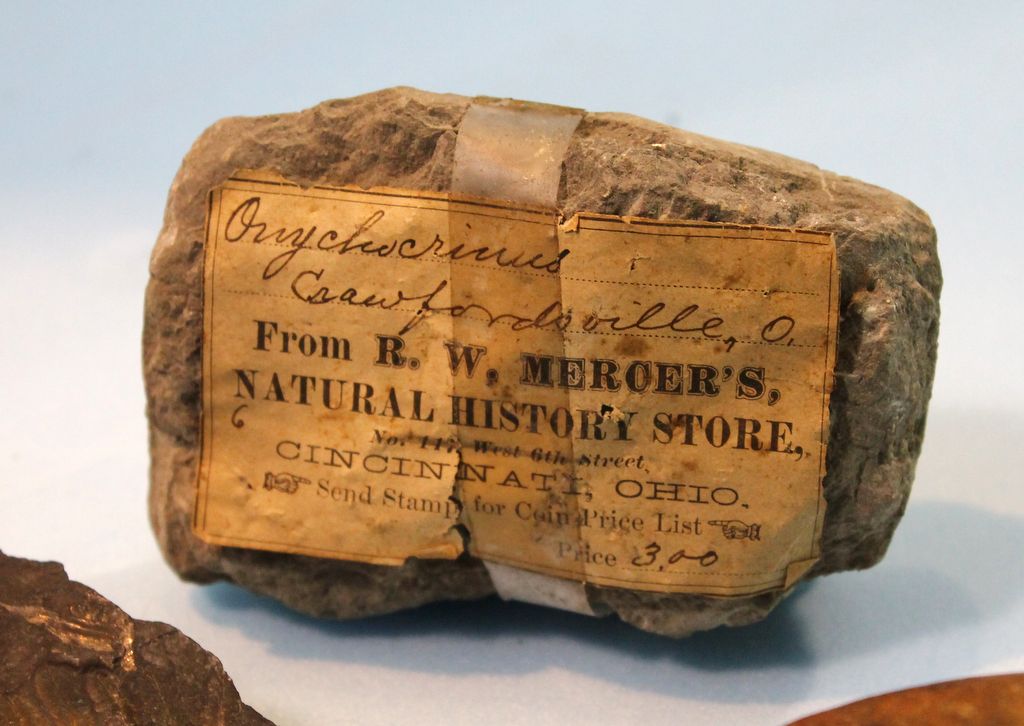 Onychocrinus
Crawfordsville, O.
From R. W. MERCER'S,
NATURAL HISTORY STORE,
6
No. 147 West 6th Street,
CINCINNATI, OHIO.
☞ Send Stamp for Coin Price List ☜
Price 3,00